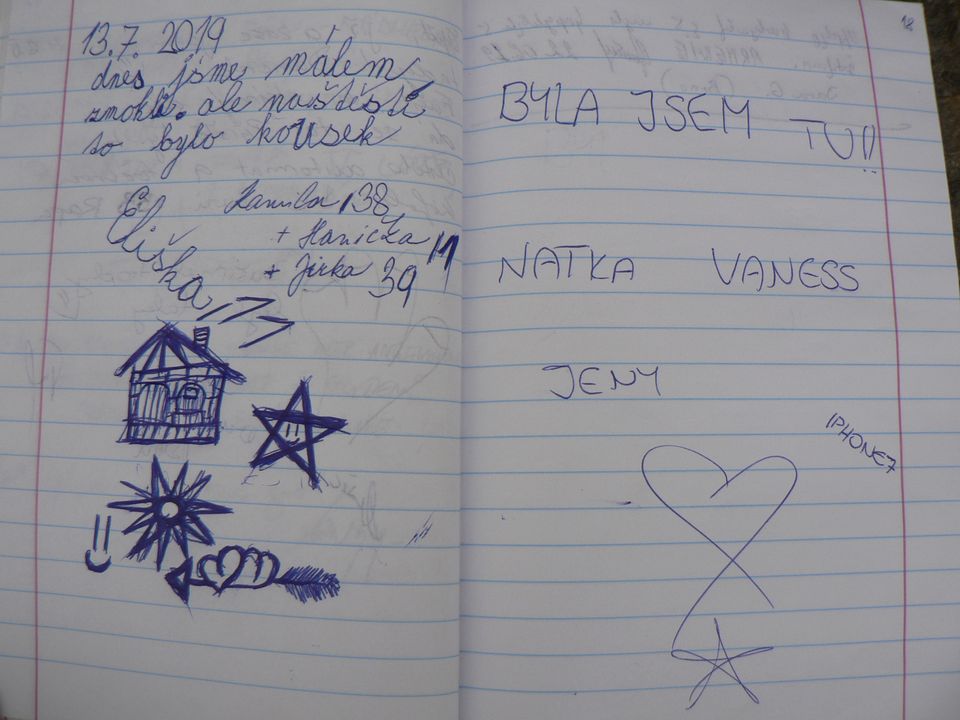 13.7. 2019
dnes jsme málem
zmokli. ale naštěstí
to bylo kousek
Kamila 38
+ Hanička 11
+ Jirka 39
Eliška 17
12
BYLA JSEM TU!!
NATKA VANESS
JENY
IPHONE7